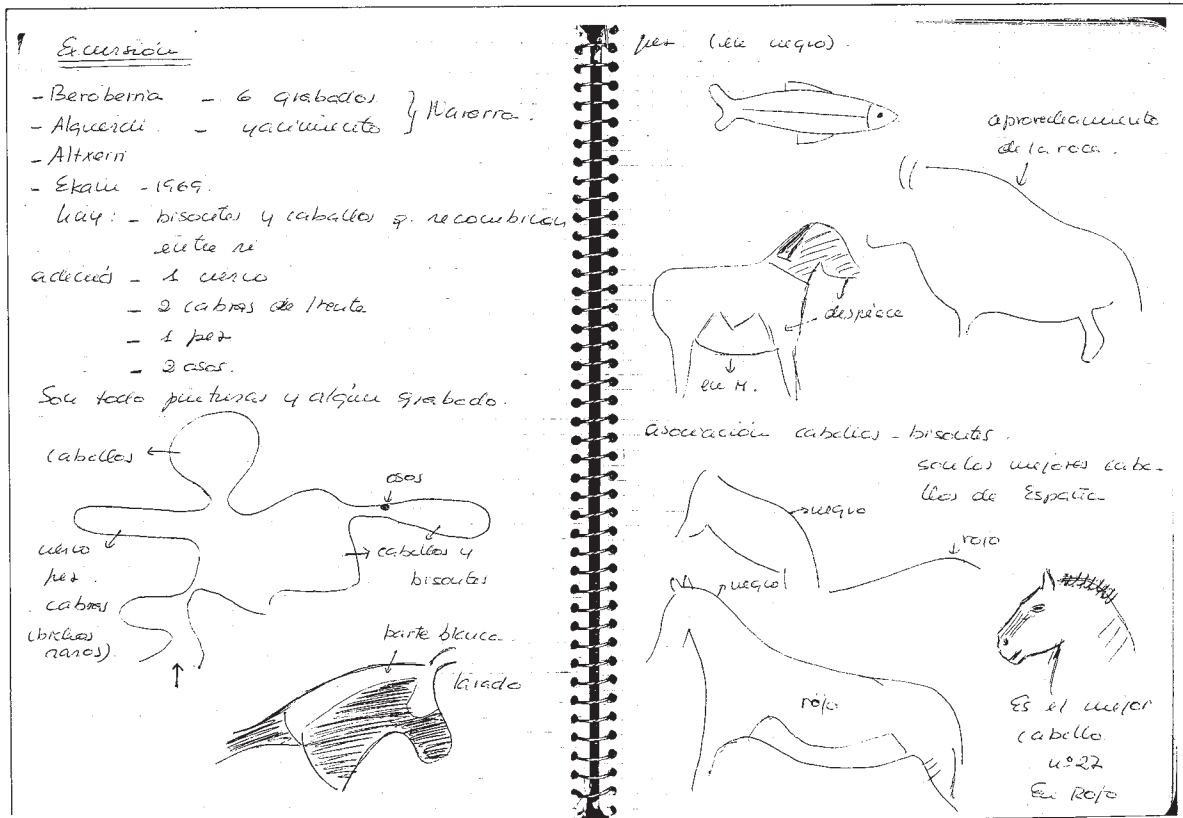 Excursión
- Beroberria - 6 grabados
- Alquerdi - yacimiento } Navarra.
- Altxerri
- Ekain - 1969.
hay: - bisontes y caballos q. se combinan
entre sí
además - 1 ciervo
- 2 cabras de frente
- 1 pez
- 2 osos.
Son todo pinturas y algún grabado.
caballos
osos
ciervo
pez
cabras
(bichos
raros).
caballos y
bisontes
parte blanca
lavado
pez (en negro).
aprovechamiento
de la roca.
despiece
en M.
asociación caballos - bisontes.
son los mejores caba-
llos de España
negro
rojo
negro
rojo
Es el mejor
caballo
nº 27
En Rojo